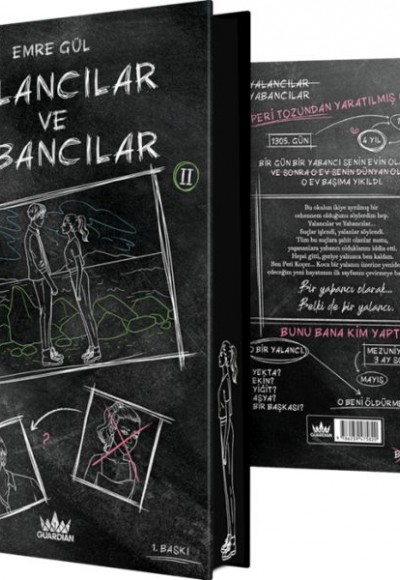 EMRE GÜL
ALANCILAR
VE
BANCILAR
II
?
GUARDIAN
1. BASKI
YALANCILAR
YABANCILAR
PERİ TOZUNDAN YARATILMIŞ
1305. GÜN
4 YIL
BİR GÜN BİR YABANCI SENİN EVİN OL
VE SONRA O EV SENİN DÜNYAN OL
O EV BAŞIMA YIKILDI.
Bu okulun ikiye ayrılmış bir
cehennem olduğunu söylerdim hep.
Yalancılar ve Yabancılar...
Suçlar işlendi, yalanlar söylendi.
Tüm bu suçlara şahit olanlar sustu,
yaşananlara yabancı olduklarını iddia etti.
Hepsi gitti, geriye yalnızca ben kaldım.
Ben Peri Koçer... Koca bir yalanın üzerine yeniden
edeceğim yeni hayatımın ilk sayfasını çevirmeye ha
Bir yabancı olarak...
Belki de bir yalancı.
BUNU BANA KİM YAPT
O BİR YALANCI
MEZUNİY
3 AY SO
YEKTA?
EKİN?
YİĞİT?
ASYA?
BİR BAŞKASI?
MAYIS
O BENİ ÖLDÜRME
GUARDIAN